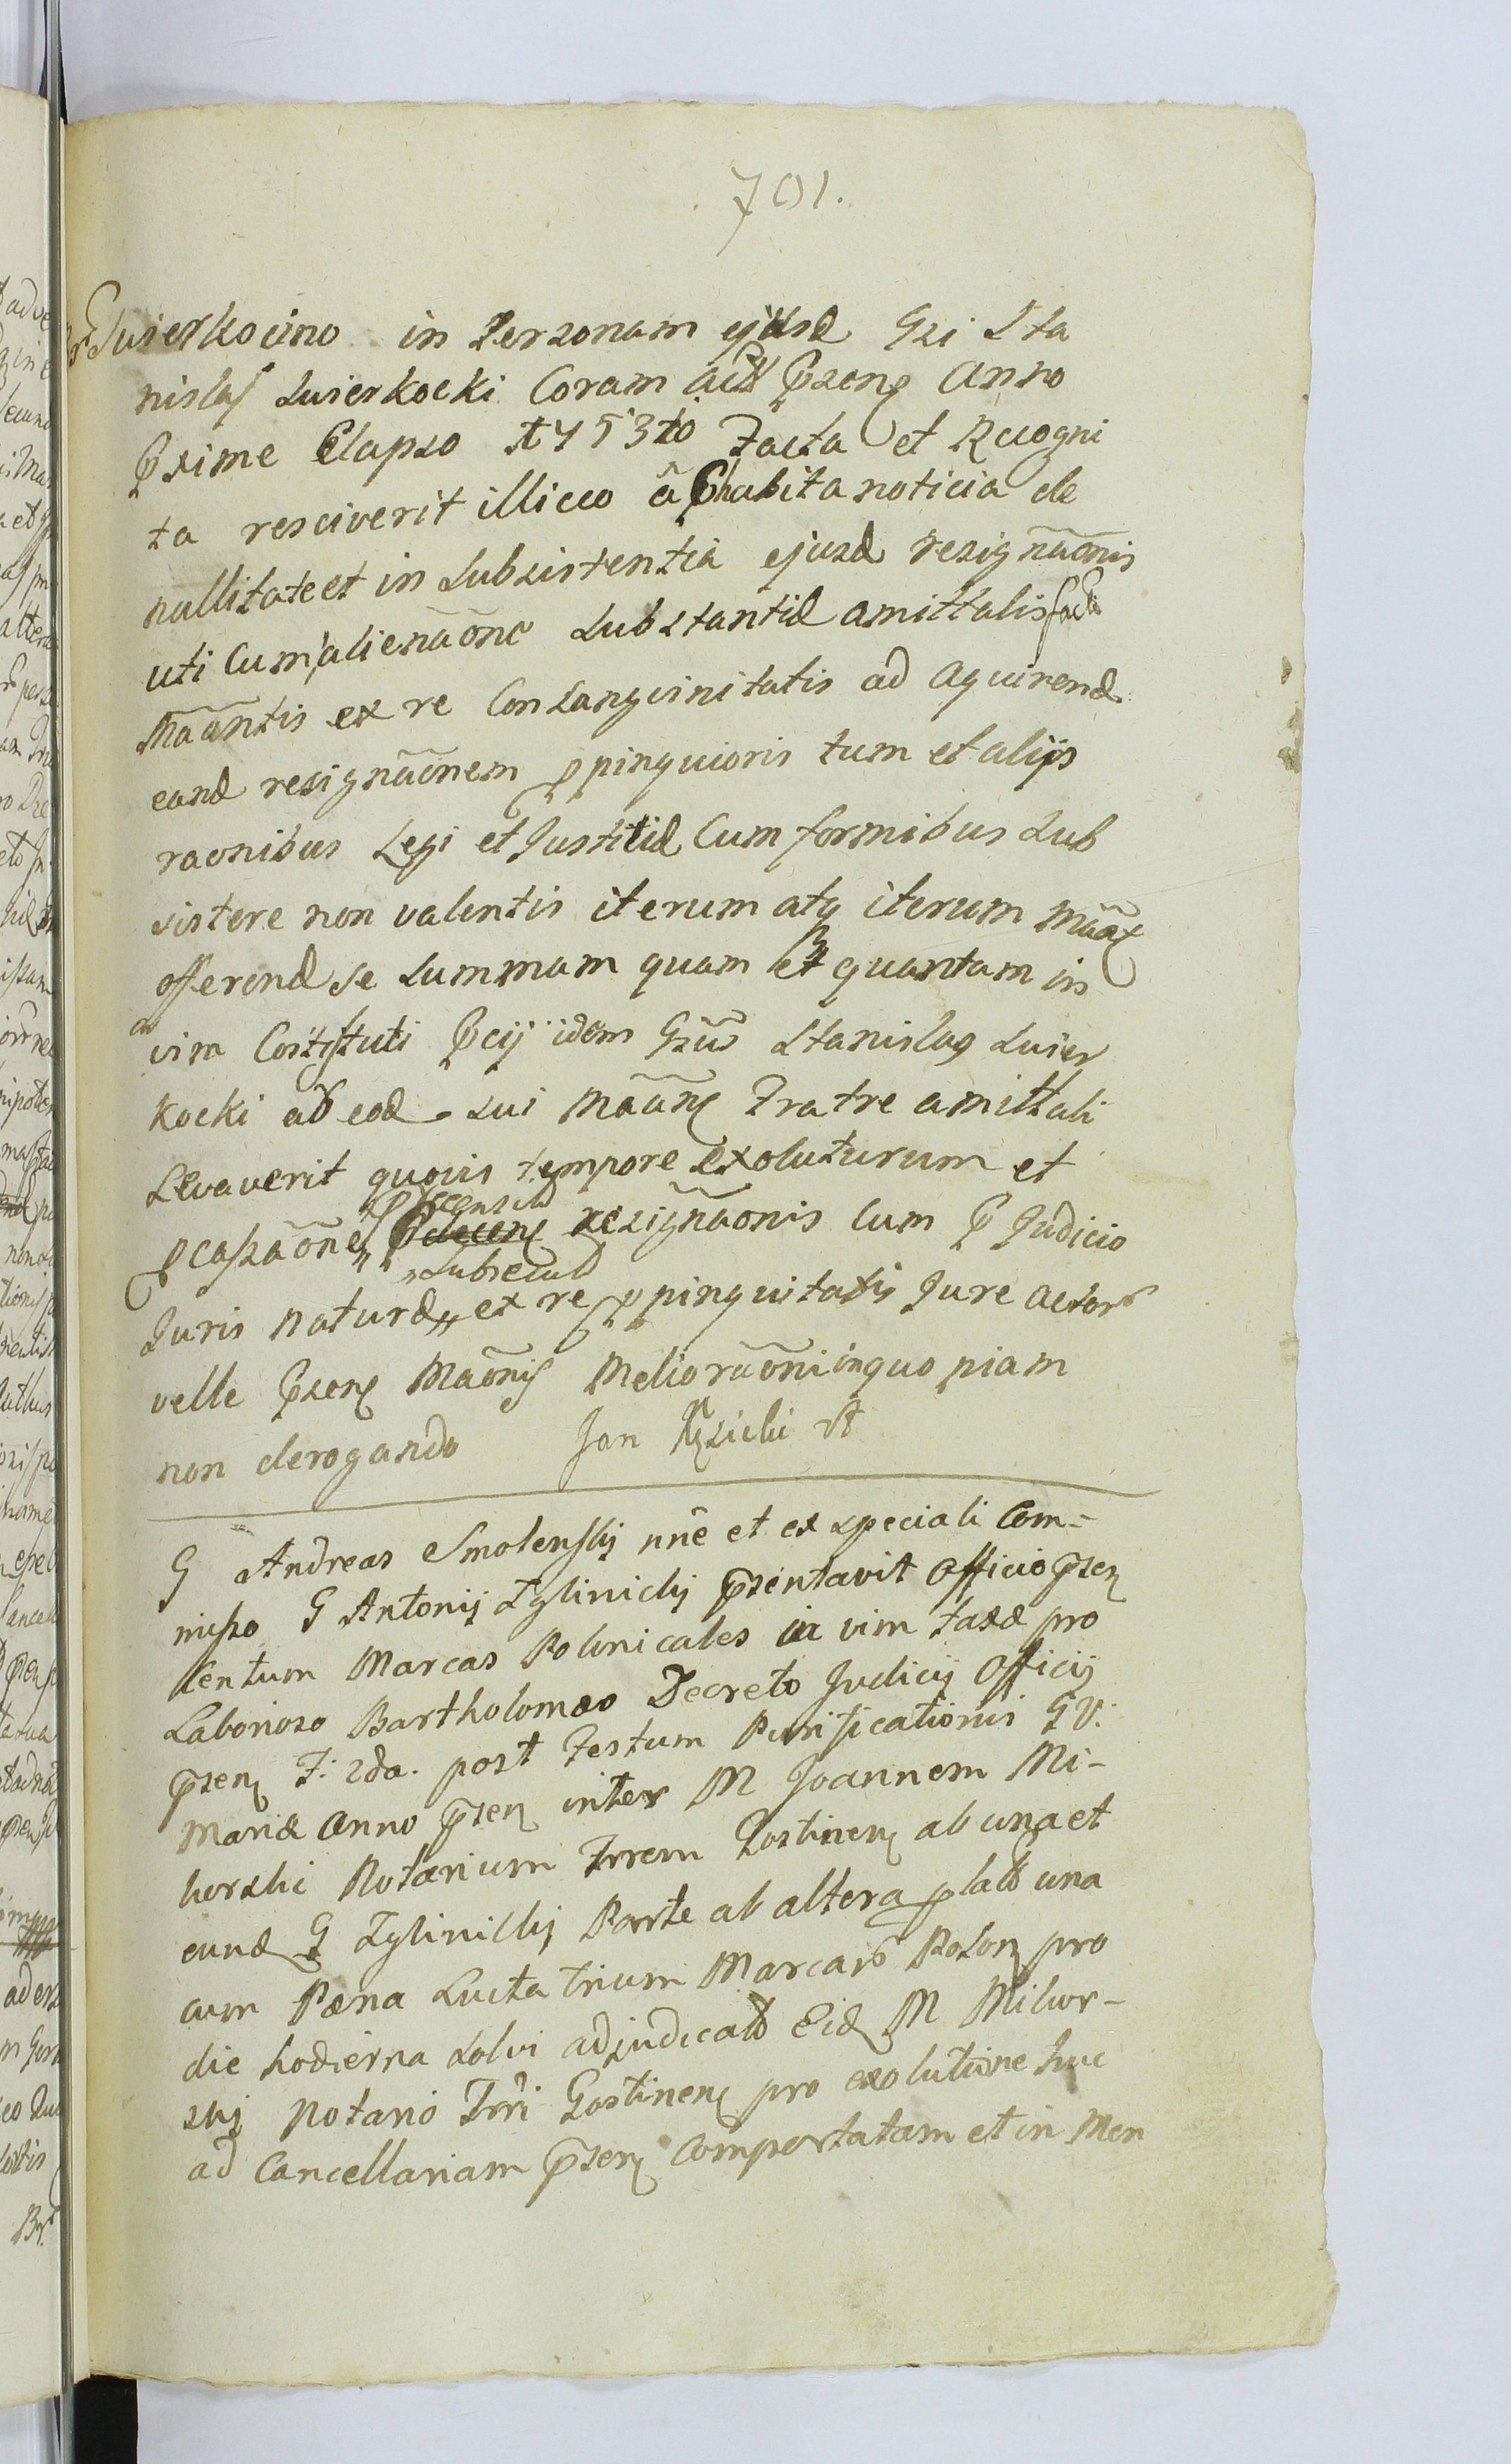 701.
Swierkocino in Personam ejusd Gsi Sta
nislaj Swierkocki Coram Actis Pszens Anno
Pxime Elapso 1753tio Facta et Recogni
ta resciverit illico â Phabita noticia de
nullitate et in Subsistentia ejusd resignãonis
uti Cum alienãone Substantiæ amittalis factæ
Mãantis ex re Consanguinitatis ad aquirend
eand resignãonem ppinquioris tum et alijs
raonibus Legi et Justitiæ Cumformibus Sub
sistere non valentis iterum atq iterum Mãat
offerend se Summam quam et quantam in
vim Constituti Pcij idem Gsus Stanislaus Swier
kocki ab eod sui Mãans Fratre amittali
Levaverit quovis tempore Exoluturum et
pcassãone
resignãonis Cum P Judicio
Subsecutæ
Juris naturæ,, ex re ppinquitatis Jure actors
velle Pszens Maõnis Meliorãoni in quo piam
non derogando Jan
G Andreas Smolenskj nñe et ex speciali Com-
misso G Antonij Zglinickj Psentavit Officio Pszen
Centum Marcas Polonicales in vim taxæ pro
Laborioso Bartholomæo Decreto Judicij Officij
Pszen F: 2da. post Festum Purificationis G V:
Mariæ Anno Pszen inter M Joannem Mi-
horski Notarium Trrem Gostinens ab una et
eund G Zglinickj Parte ab altera plato una
cum Pæna Lucta trium Marcars Polon pro
die hodierna Solvi adjudicato Eid M Mihor-
skj Notario Trri Gostinens pro exolutione huc
ad Cancellariam Pszens Comportatam et in Men